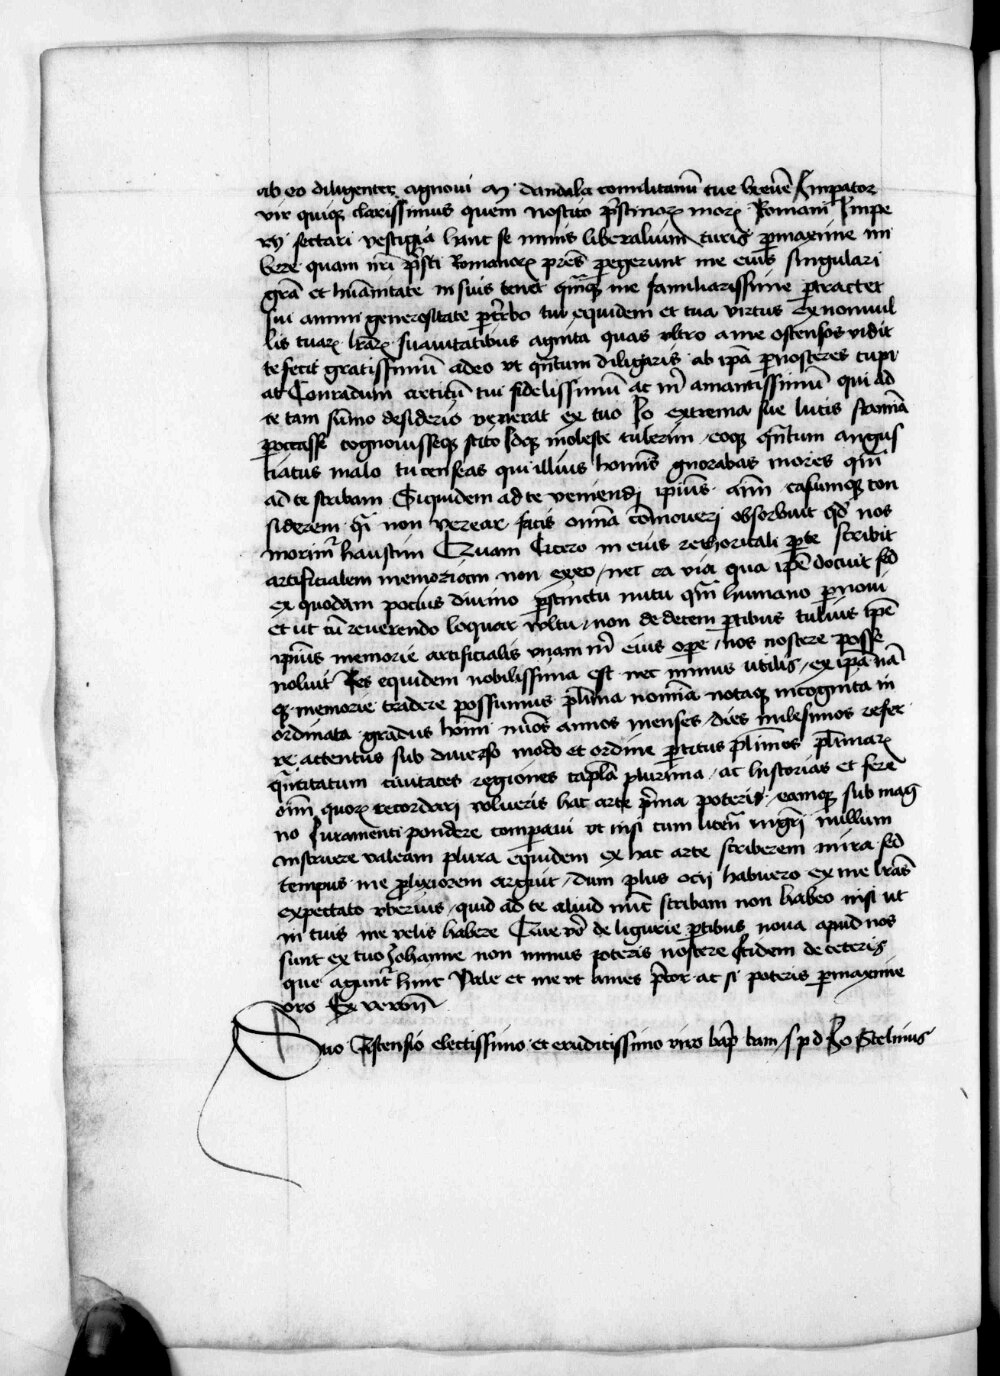 ab eo diligenter agnovi M. dandala comilitanũ tue brevẽ Impator
vir quiqȝ clarissimus quem nostito p̃stinoꝝ moꝝ Romani Impe
rij sectari vestigia hanc se nimis liberalium curis pmaxime im
bere quam nr̃i p̃sti Romanoꝝ pr̃es pegerunt me eius singulari
gr̃a et hũanitate in suis tenet qm̃qȝ me familiarissime ptractet
sui animi generositate ptr̃bo tui equidem et tua virtus ex nonnul
lis tuaꝝ lr̃aꝝ suavitatibus agnita quas ultro a me ostensos vidit
te fecit gratissimũ adeo ut qñtum diligaris ab ip̃a pnosceres cupi
at Conradum creticũ tui fidelissimũ ac mr̃ amantissimũ qui ad
te tam sũmo desiderio venerat ex tuo Jo extrema sue lucis stamĩa
poccasse cognovisseqȝ scito Idqȝ moleste tulerim, eoqȝ qñtum angus
tiatus malo tu censeas qui illius homĩs gnorabas mores qm̃
ad te scribam Siquidem ad te veniendi ipĩus aĩm casumqȝ con
siderem qȝ non verear satis omĩa cõmoveri obsorbuit qd̃ nos
morimr̃ haustim Quam Cicero in eius rethoricali pte scribit
artificialem memoriam non exeo, nec ea via qua ipẽ docuit sed
ex quodam pocius divino pstinctu nutu qm̃ humano pnovi
et ut cũ reverendo loquar vultu, non de decem ptibus tulius ipẽ
ipĩus memorie artificialis unam mr̃ eius ope, nos noscere posse
noluit Res equidem nobilissima est nec minus utilis, ex ip̃a nã
qȝ memorie tradere possumus pl̃ima nomĩa notaqȝ incognita in
ordinata gradus homĩ nũos annos menses, dies milesimos refer
re actentus sub diverso modo et ordine ptitus pl̃imos pl̃imaꝝ
qñtitatum civitates regiones capl̃a plurima, ac historias et fere
oĩm quoꝝ recordari volveris hac arte p̃ma poteris, eamqȝ sub mag
no Iuramenti pondere comparavi ut nisi cum licẽn mgr̃i nullum
instruere valeam plura equidem ex hac arte scriberem mira sed
tempus me plixiorem arguit, dum plus ocij habuero ex me lr̃as
expectato uberius, quid ad te aliud nũc scribam non habeo nisi ut
in tuis me velis habere Que v̊o de ligurie ptibus nova apud nos
sunt ex tuo Johanne non minus poteris noscere Itidem de ceteris
que aguntr̃ hinc Vale et me ut ames p̃cor ac si poteris pmaxime
oro Ex veron̄
Suo Astensio electissimo et eruditissimo viro bap̃ bam, s p d Jo Stelinus